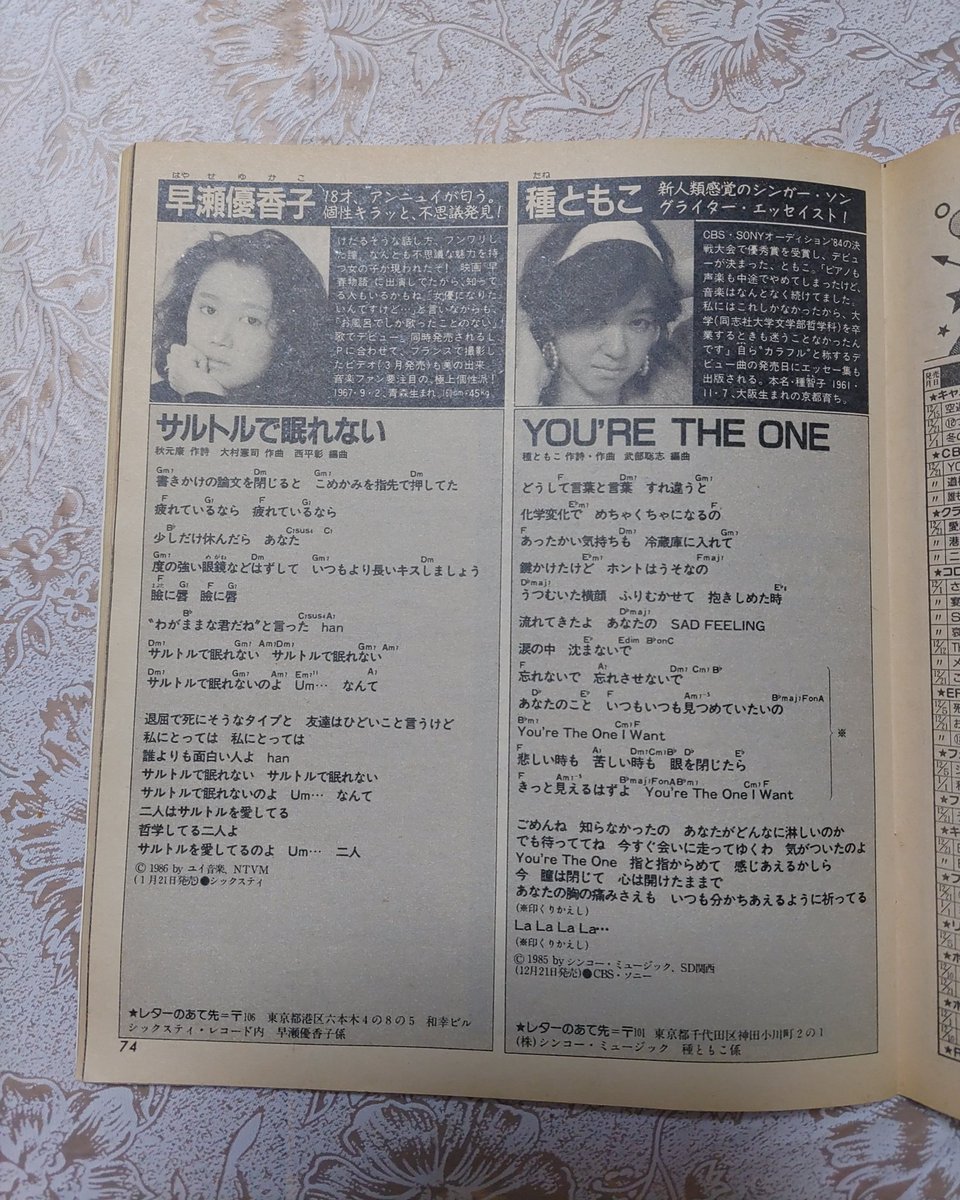 はやせゆかこ
早瀬優香子
18才、アンニュイが匂う。
個性キラッと、不思議発見！
けだるそうな話し方、フワンリし
た瞳、なんとも不思議な魅力を持
つ女の子が現われたぞ！ 映画『早
春物語』に出演してたから、知って
る人もいるかもね。「女優になりた
いんですけど…」と言いながらも、
「お風呂でしか歌ったことのない」
歌でデビュー。同時発売されるL
Pに合わせて、フランスで撮影し
たビデオ(3月発売)も
音楽ファン要注目の、極上個性派！
1967・9・2、青森生まれ。161cm・45kg
サルトルで眠れない
秋元康 作詩 大村憲司 作曲 西平彰 編曲
Gm7 Dm Gm7 Dm
書きかけの論文を閉じると こめかみを指先で押してた
F G7 F G7
疲れているなら 疲れているなら
B♭ C7sus4 C7
少しだけ休んだら あなた
Gm7 Dm Gm7 Dm
度の強い眼鏡などはずして いつもより長いキスしましょう
F G7 F G7
瞼に唇 瞼に唇
B♭ C7sus4 A7
“わがままな君だね”と言った han
Dm7 Gm7 Am7 Dm7 Gm7 Am7
サルトルで眠れない サルトルで眠れない
Dm7 Gm7 Am7 Em7 A7
サルトルで眠れないのよ Um… なんて
退屈で死にそうなタイプと 友達はひどいこと言うけど
私にとっては 私にとっては
誰よりも面白い人よ han
サルトルで眠れない サルトルで眠れない
サルトルで眠れないのよ Um… なんて
二人はサルトルを愛してる
哲学してる二人よ
サルトルを愛してるのよ Um… 二人
© 1986 by ユイ音楽, NTVM
(1月21日発売)●シックスティ
★レターのあて先＝〒106 東京都港区六本木4の8の5 和幸ビル
シックスティ・レコード内 早瀬優香子係
74
たね
種ともこ
新人類感覚のシンガー・ソン
グライター・エッセイスト！
CBS・SONYオーディション'84の決
戦大会で優秀賞を受賞し、デビュ
ーが決まった、ともこ。「ピアノも
声楽も中途でやめてしまったけど、
音楽はなんとなく続けてました。
私にはこれしかなかったから、大
学(同志社大学文学部哲学科)を卒
業するときも迷うことなかったん
です」。自ら“カラフル”と称するデ
ビュー曲の発売日にエッセー集も
出版される。本名・種智子 1961・
11・7、大阪生まれの京都育ち。
YOU'RE THE ONE
種ともこ 作詩・作曲 武部聡志 編曲
F Dm7 Gm7
どうして言葉と言葉 すれ違うと
E♭m7 F
化学変化で めちゃくちゃになるの
F Dm7 Gm7
あったかい気持ちも 冷蔵庫に入れて
E♭m7 Fmaj7
鍵かけたけど ホントはうそなの
D♭maj7 E♭6
うつむいた横顔 ふりむかせて 抱きしめた時
D♭maj7
流れてきたよ あなたの SAD FEELING
E♭ Edim B♭onC
涙の中 沈まないで
F A7 Dm7 Cm7 B♭
忘れないで 忘れさせないで
D♭ E♭ F Am7-5 B♭maj7 FonA
あなたのこと いつもいつも見つめていたいの
B♭m7 Cm7 F
You're The One I Want
※
F A7 Dm7 Cm7 B♭ D♭ E♭
悲しい時も 苦しい時も 眼を閉じたら
F Am7-5 B♭maj7 FonA B♭m7 Cm7 F
きっと見えるはずよ You're The One I Want
ごめんね 知らなかったの あなたがどんなに淋しいのか
でも待っててね 今すぐ会いに走ってゆくわ 気がついたのよ
You're The One 指と指からめて 感じあえるかしら
今 瞳は閉じて 心は開けたままで
あなたの胸の痛みさえも いつも分かちあえるように祈ってる
(※印くりかえし)
La La La La…
(※印くりかえし)
© 1985 by シンコー・ミュージック、SD関西
(12月21日発売)●CBS・ソニー
★レターのあて先＝〒101 東京都千代田区神田小川町2の1
(株)シンコー・ミュージック 種ともこ係